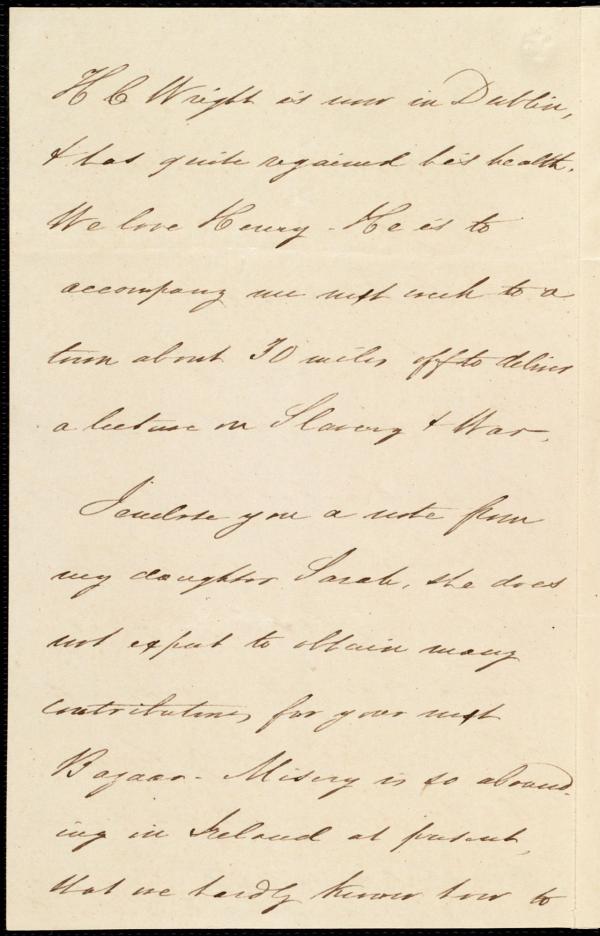 H C Wright is now in Dublin,
& has quite regained his health.
We love Henry - He is to
accompany me next week to a
town about 30 miles off to deliver
a lecture on Slavery & War.
I enclose you a note from
my daughter Sarah, she does
not expect to obtain many
contributions for your next
Bazaar - Misery is so abound-
ing in Ireland at present,
that we hardly know how to